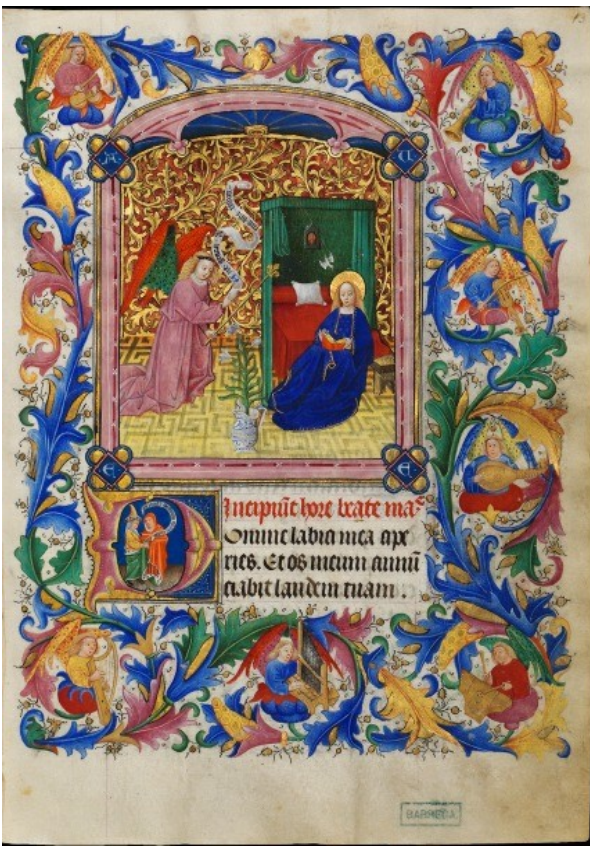 13
Incipiūt hore beate ma
Domine labia mea ape
ries. Et os meum annū
ciabit laudem tuam .
E E